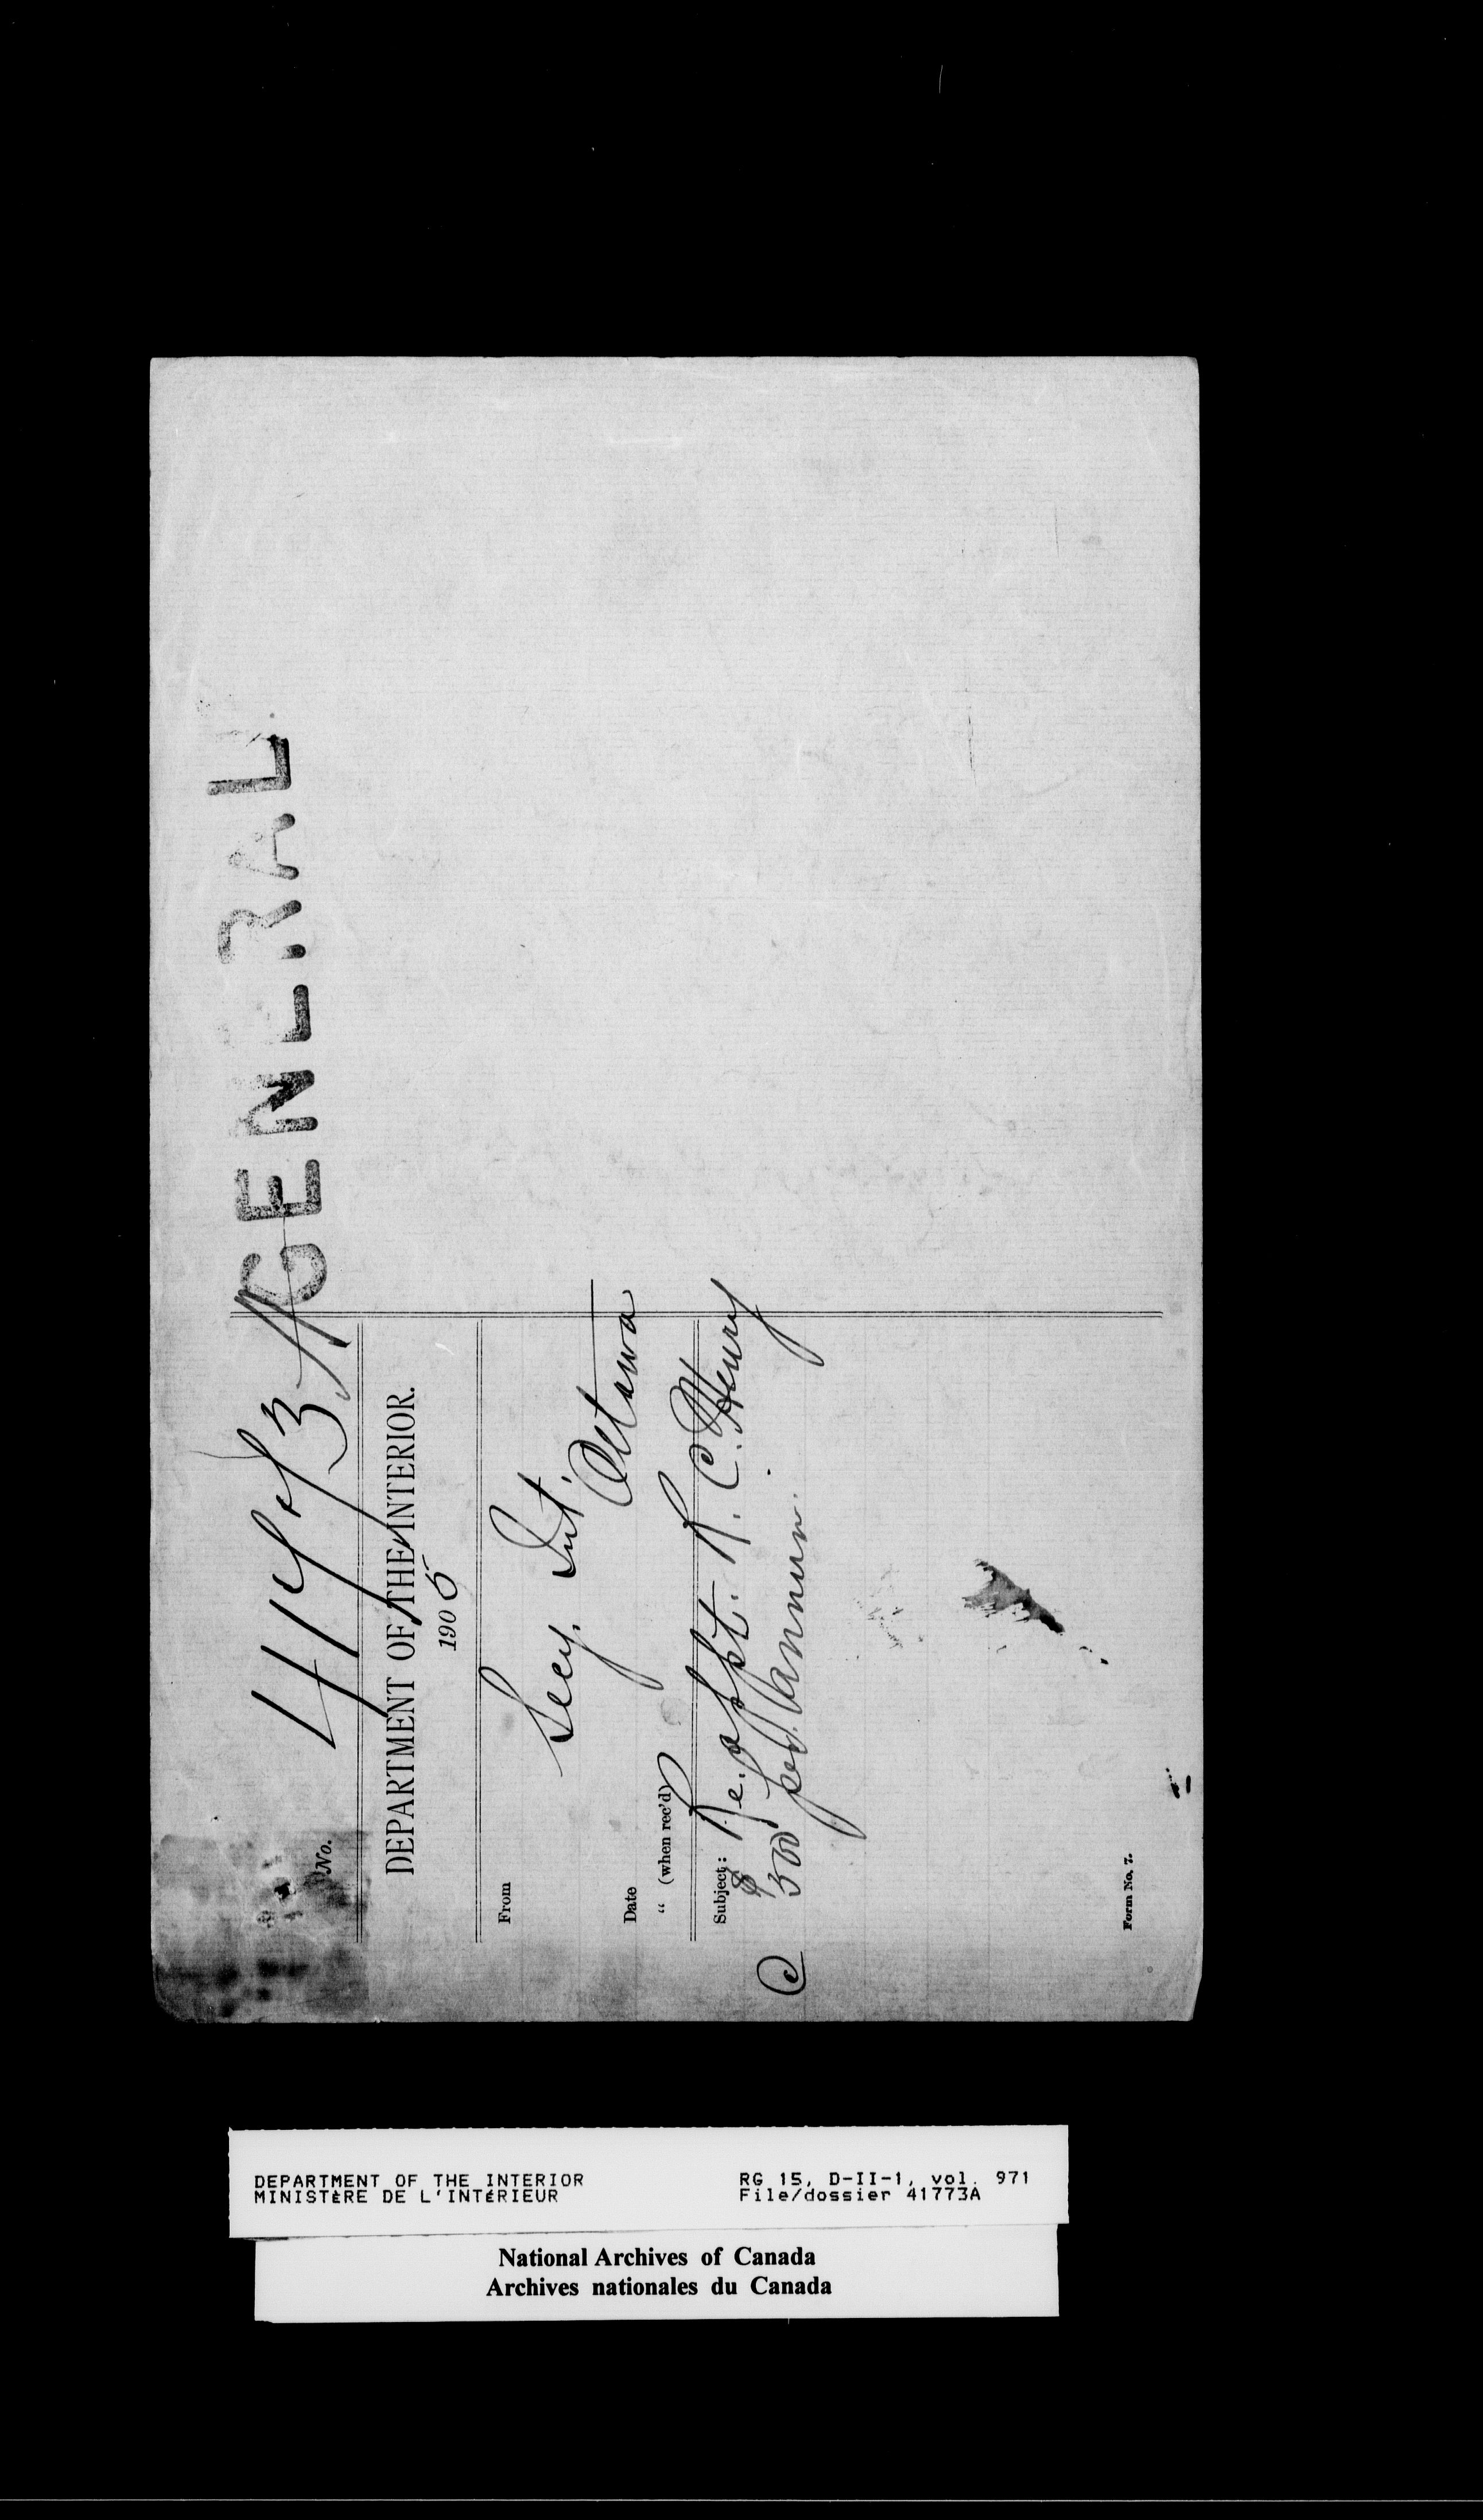 GENERAL
No. 41773 A
DEPARTMENT OF THE INTERIOR.
1905
From
Secy. Int.
Ottawa
Date
“ (when rec'd)
Subject: Re. appt. R. C. Henry
$ 300 per annum.
C
Form No. 7.
DEPARTMENT OF THE INTERIOR
MINISTÈRE DE L'INTÉRIEUR
RG 15, D-II-1, vol. 971
File/dossier 41773A
National Archives of Canada
Archives nationales du Canada